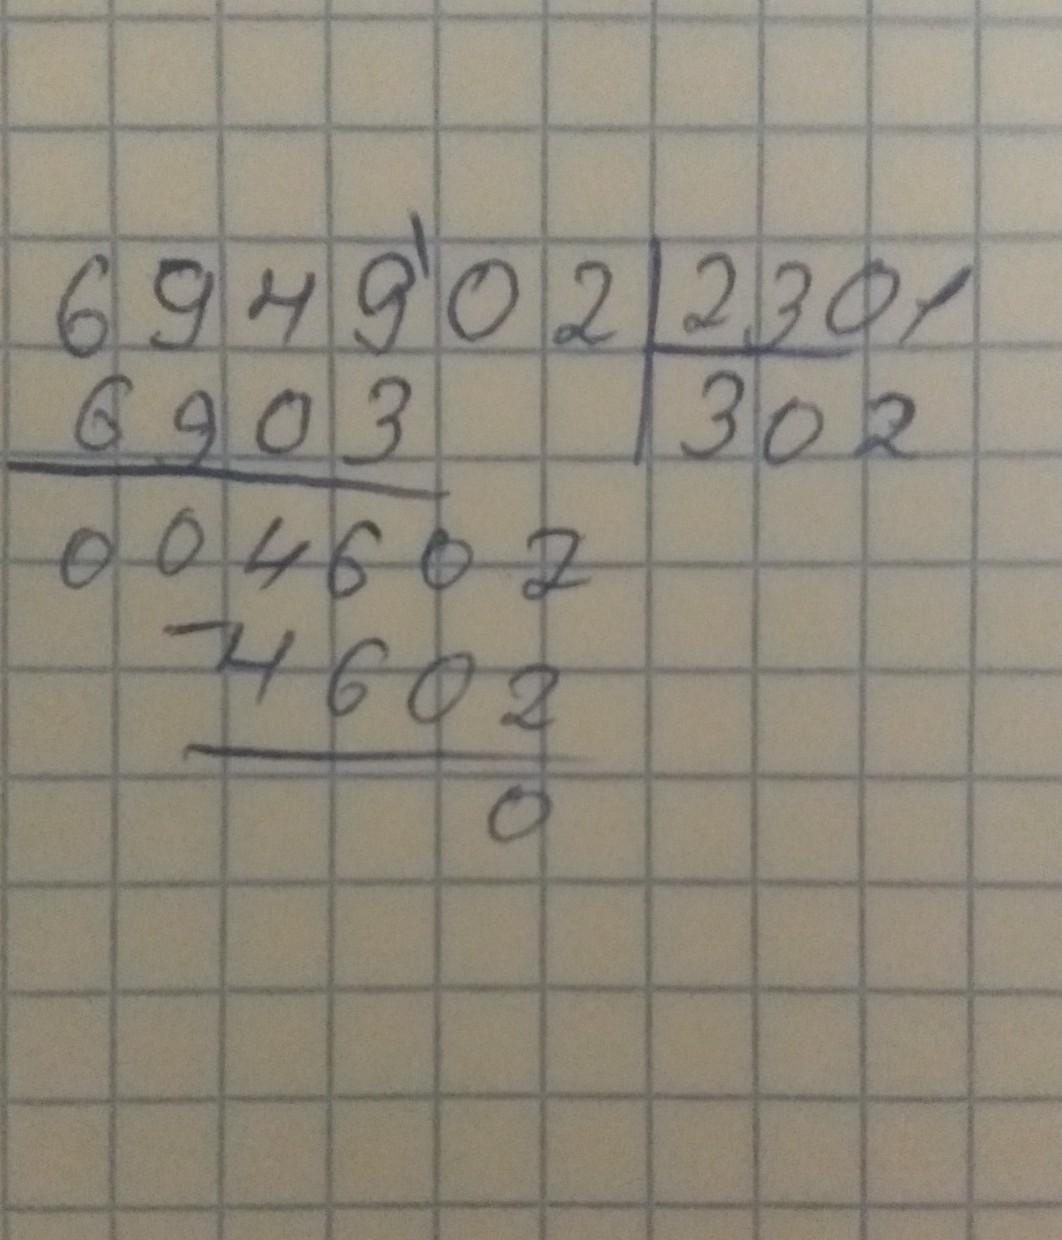 694902 2301
6903 302
004602
-4602
0